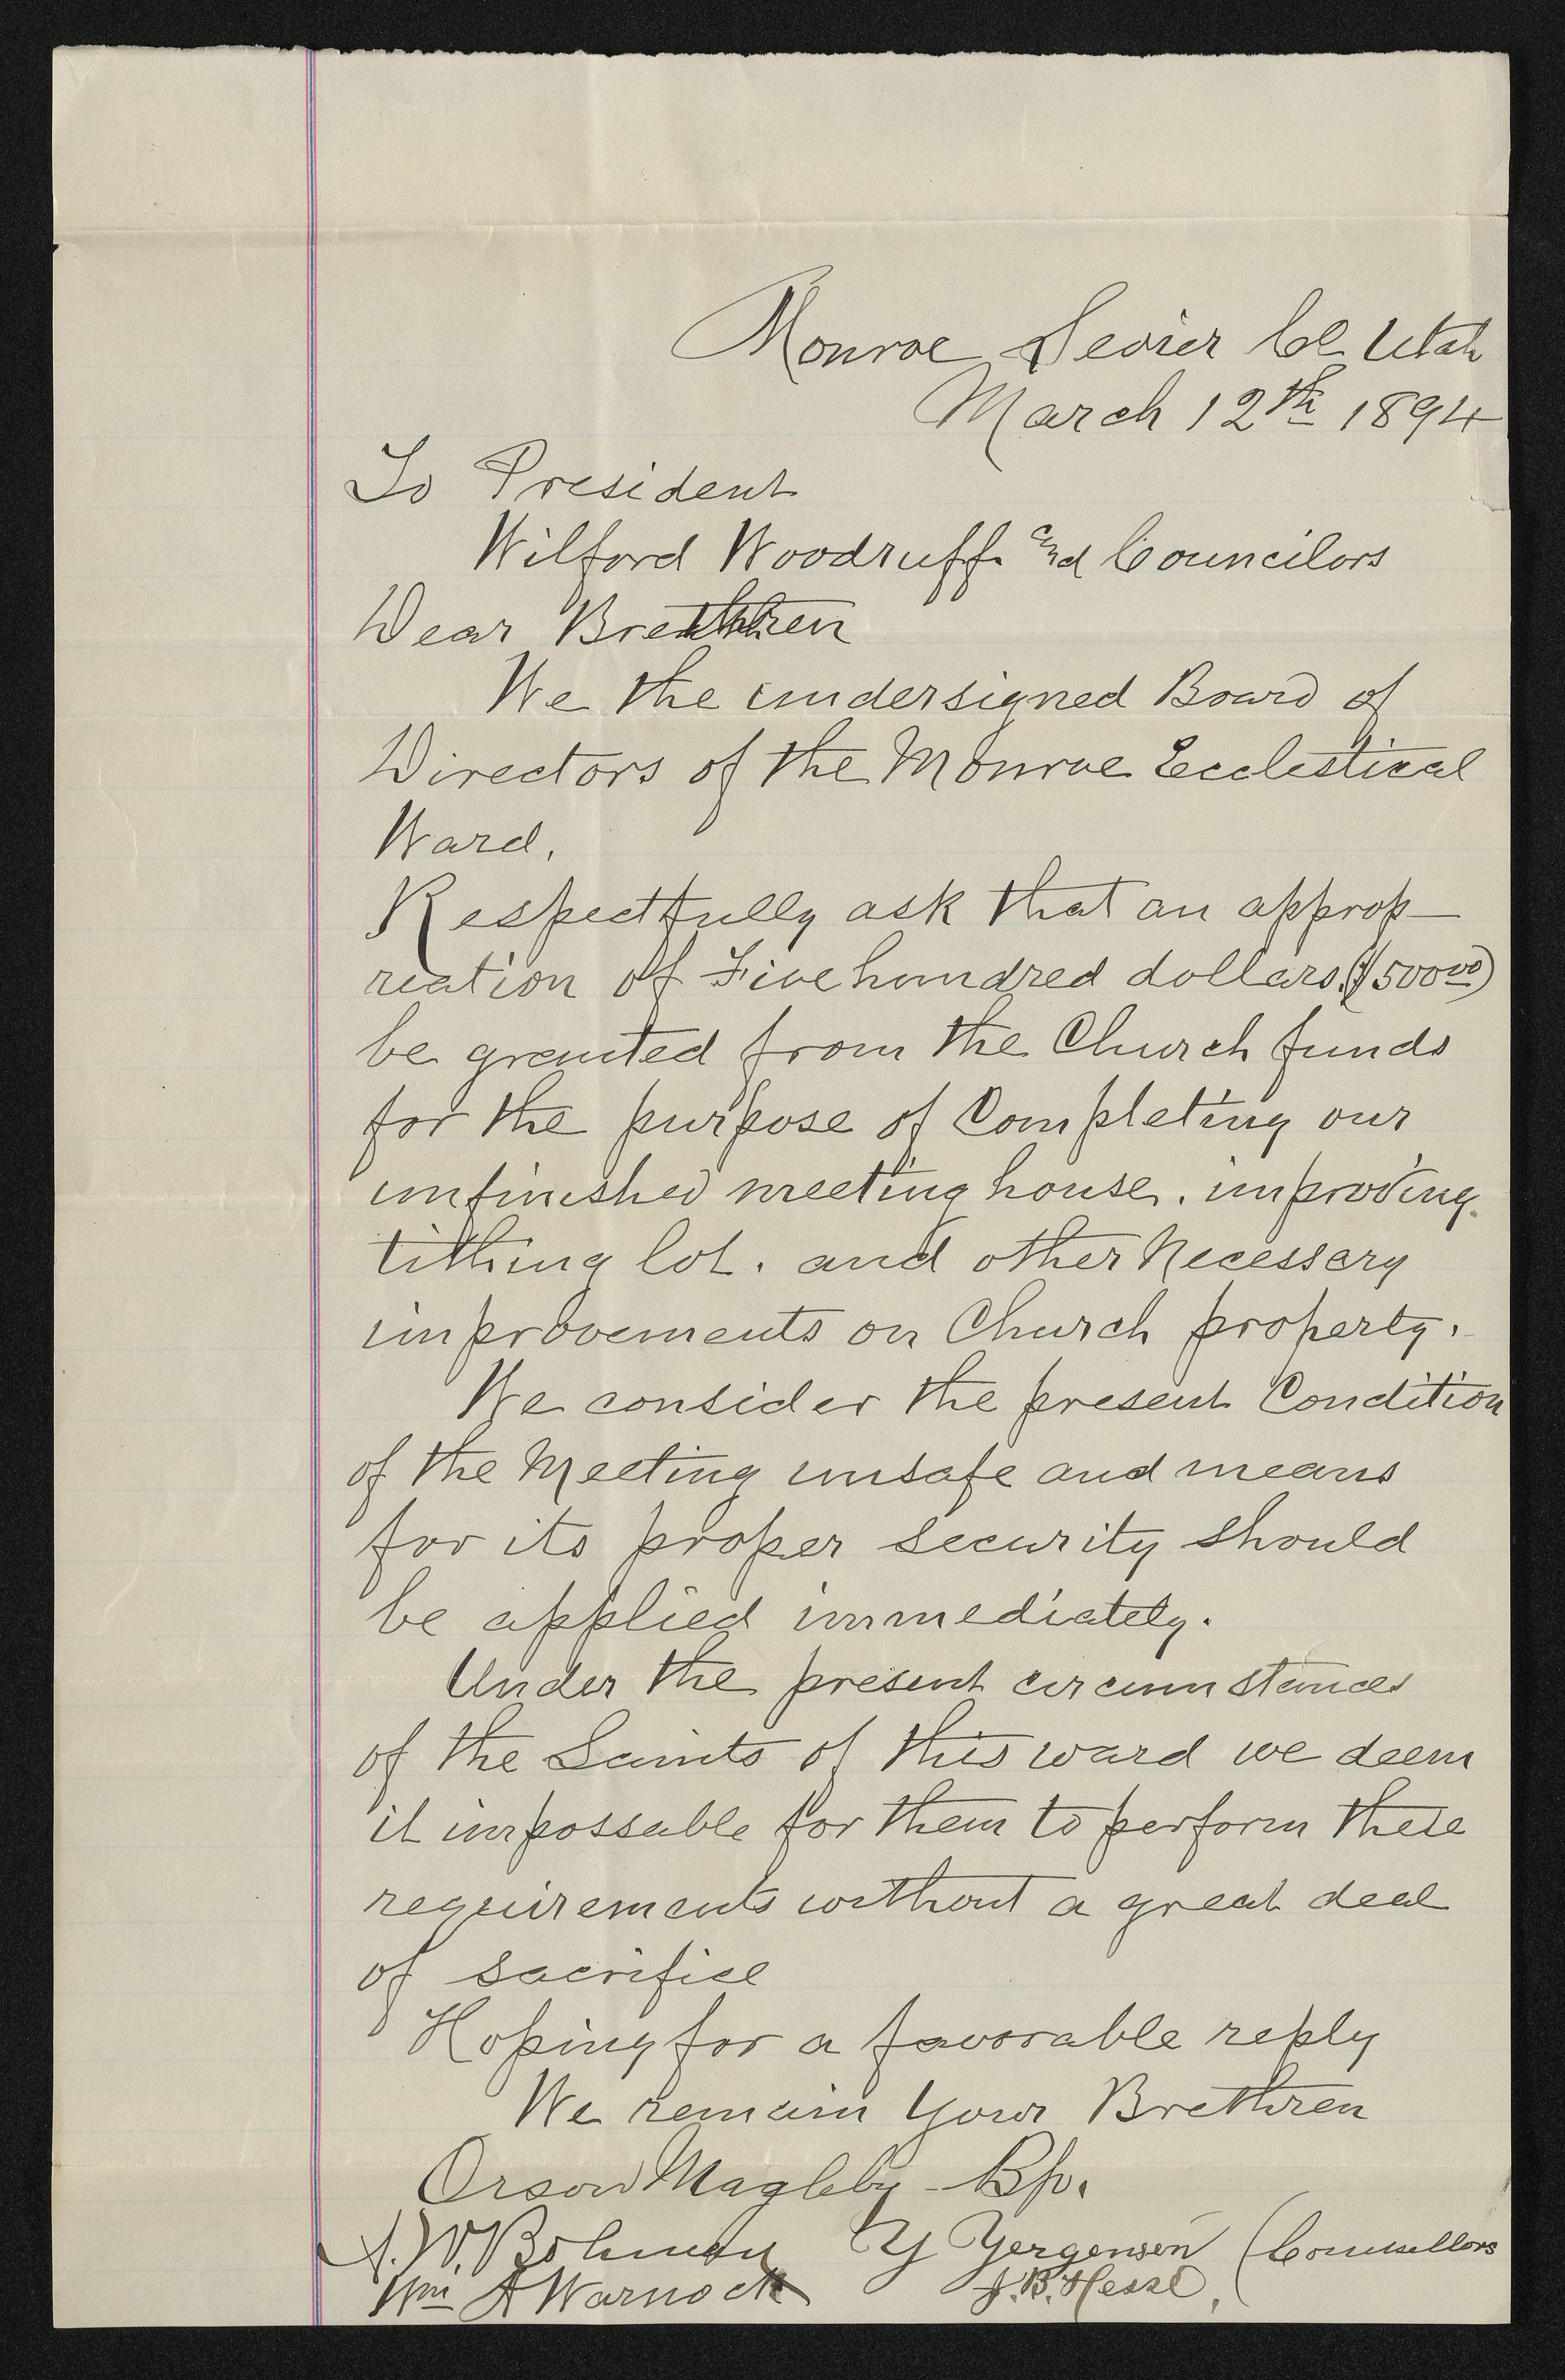 Monroe Sevier Co Utah
March 12th 1894
To President
Wilford Woodruff. and Councilors
Dear Brethren
We the undersigned Board of
Directors of the Monroe Ecclestical
Ward,
Respectfully ask that an approp-
riation of Five hundred dollars ($500 00)
be granted from the Church funds
for the purpose of Completing our
unfinished meeting house. improving
tithing lot. and other Necessary
improvements on Church property.
We consider the present Condition
of the Meeting unsafe and means
for its proper security should
be applied immediately.
Under the present circumstances
of the Saints of this ward we deem
it impossable for them to perform these
requirements without a great deal
of sacrifice
Hoping for a favorable reply
We remain Your Brethren
Orson Magleby - Bp.
W. Bohman Y Yergensen (Counsellors
Wm A Warnock J. B. Hesse,